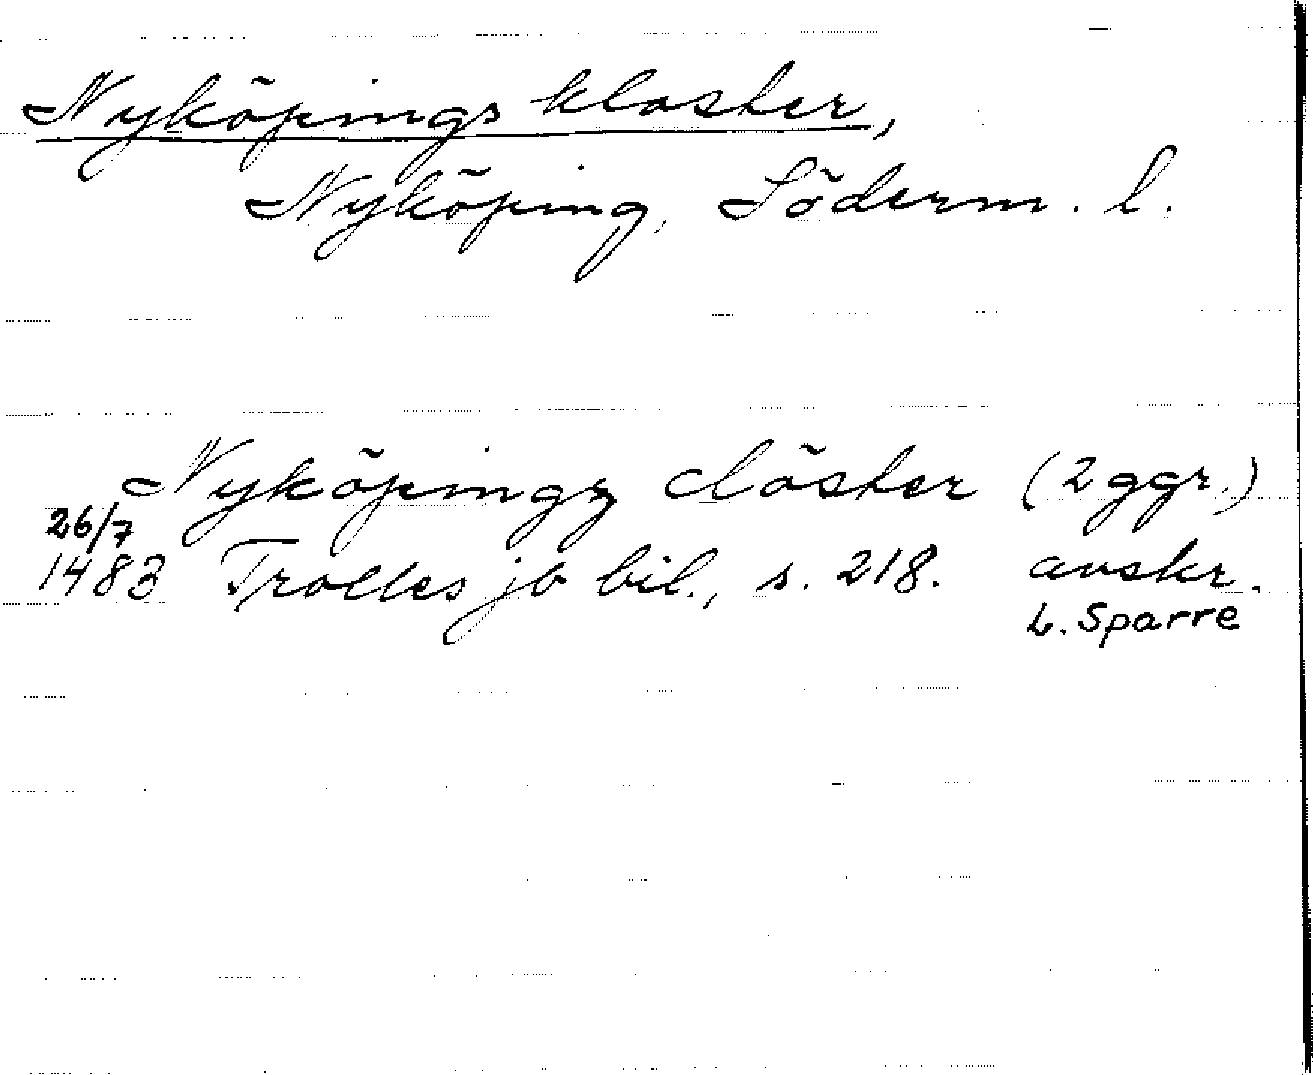 Nyköpings kloster,
Nyköping, Söderm. l.
Nyköpingz clöster (2 ggr.)
26/7
1483 Trolles jb bil., s. 218. avskr.
L. Sparre